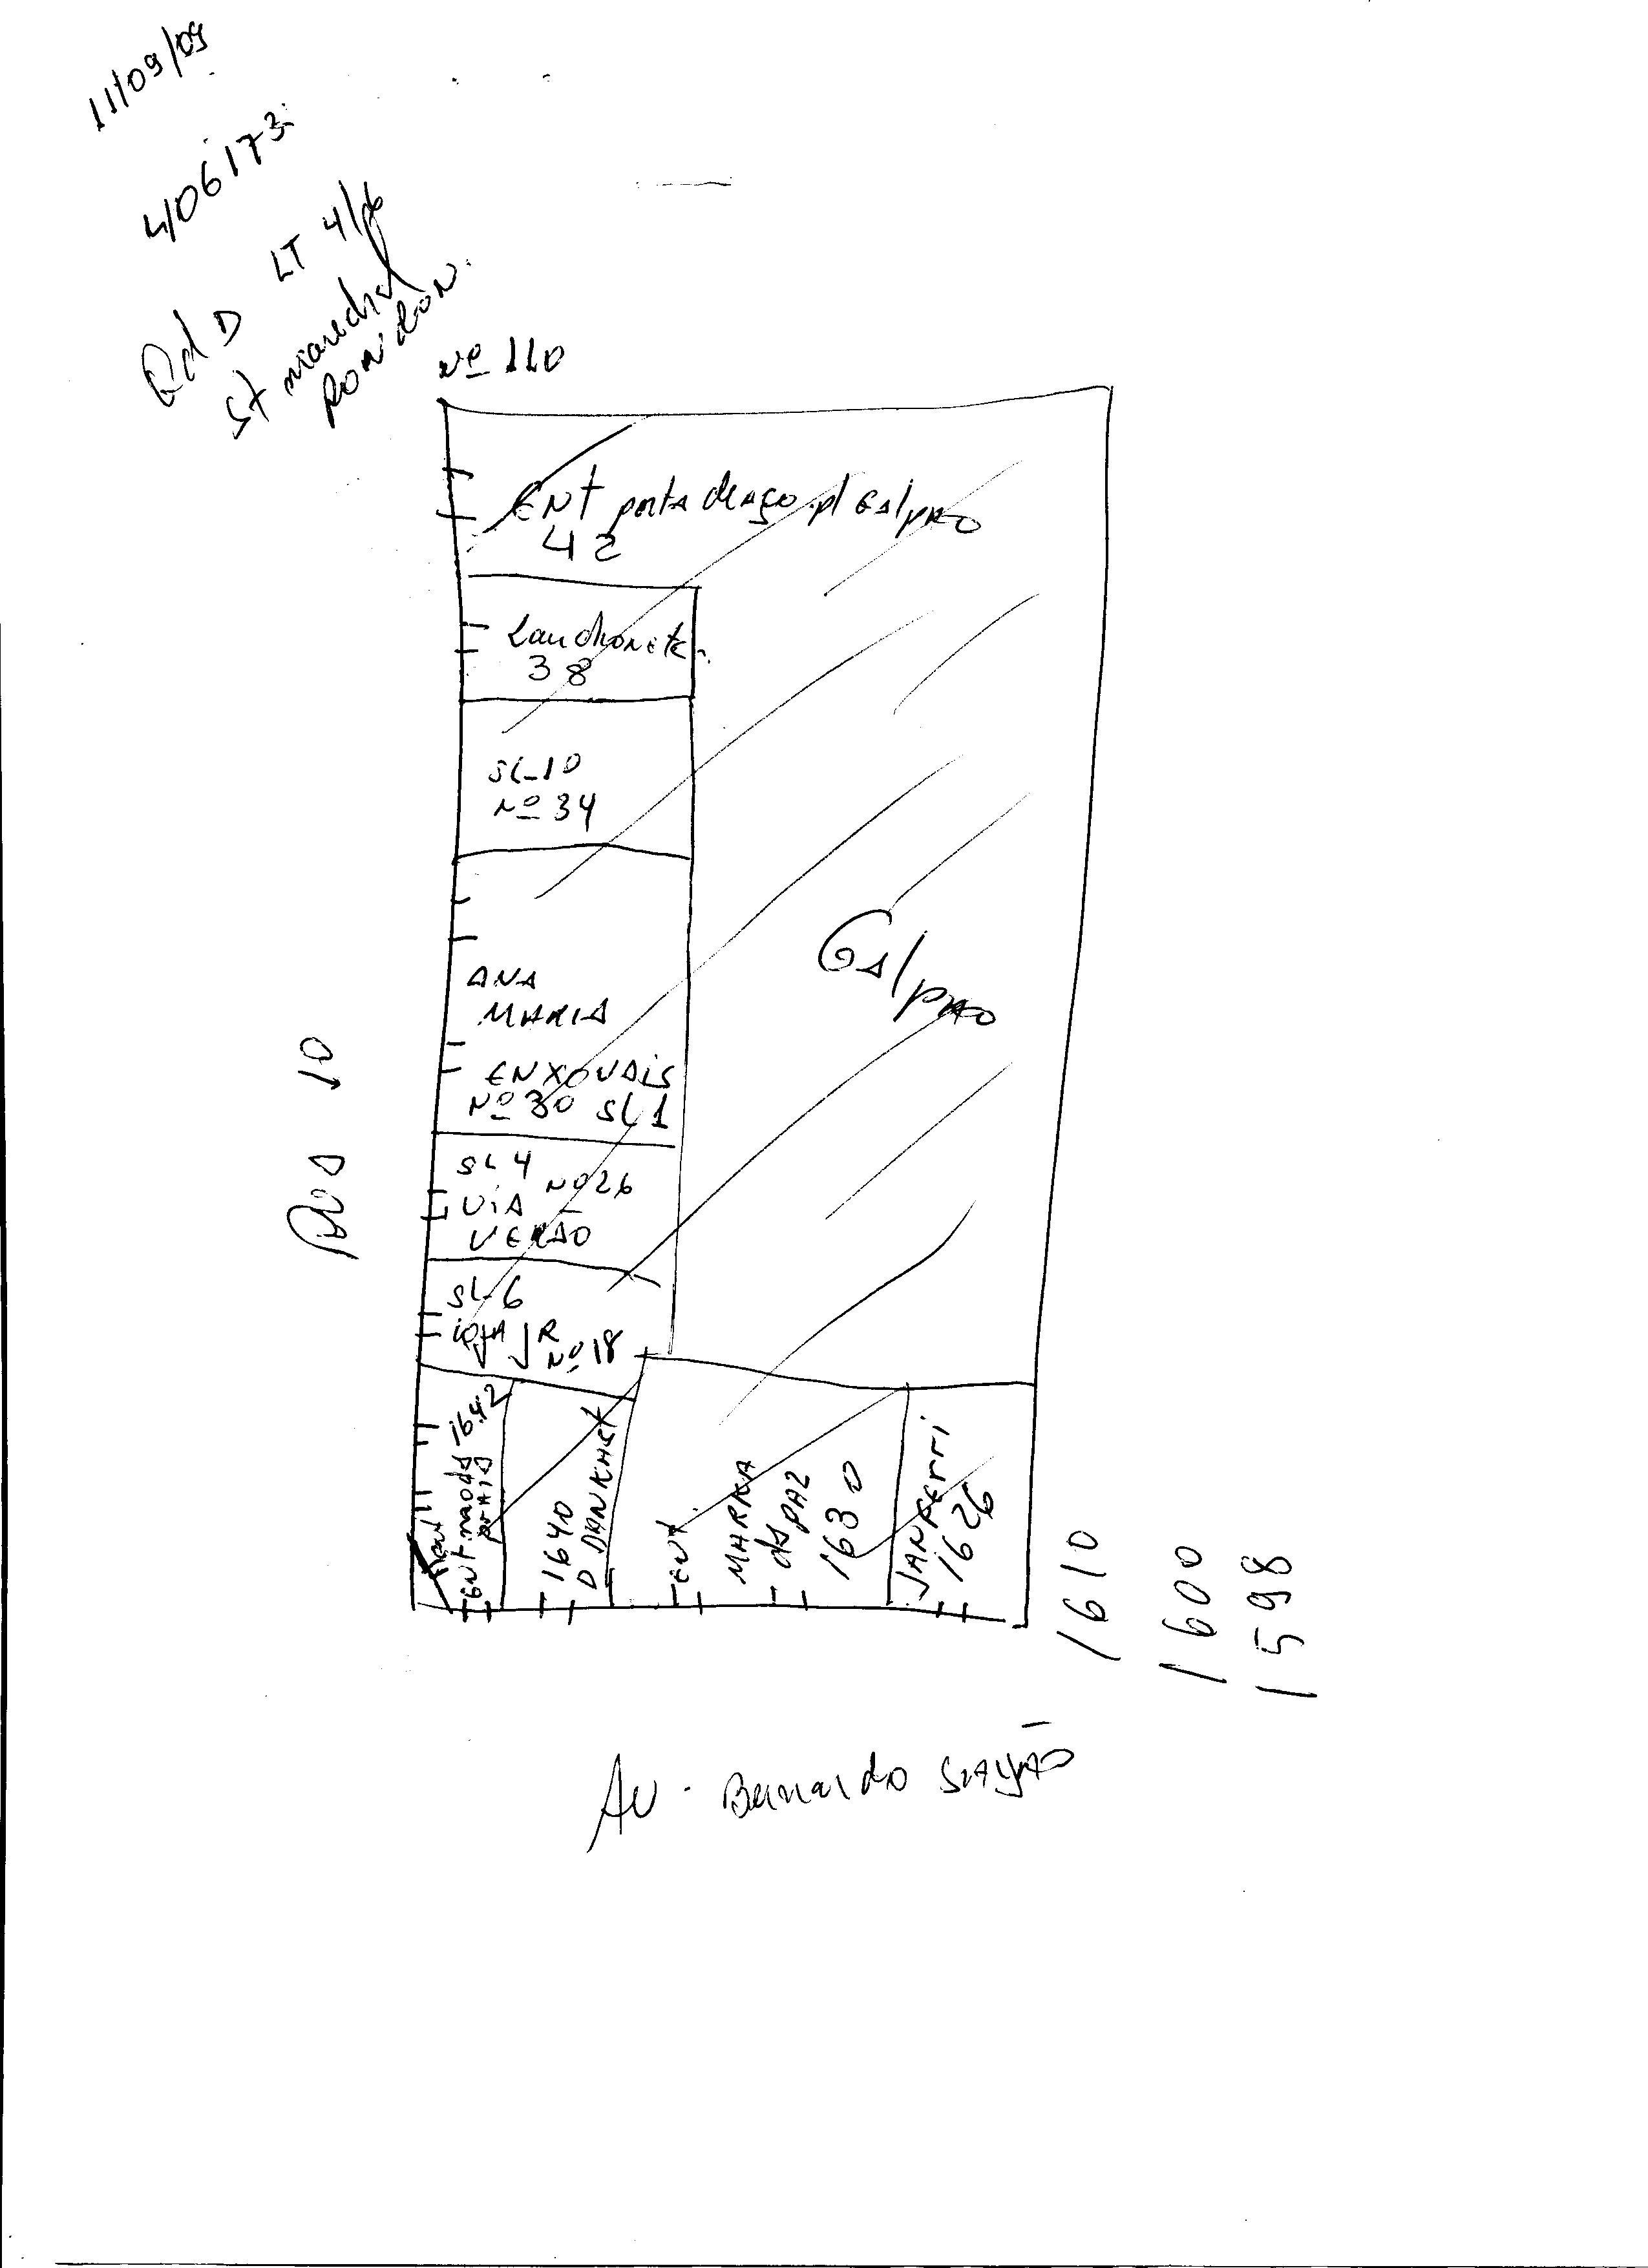 11/09/09
406173
Qd D LT 4/6
St marechal
Rondon.
Nº 110
ENT porta de aço p/ GalpAO
42
Lanchonete
38
SL-10
Nº 34
ANA
MARIA
ENXOVAIS
Nº 30 SL 1
SL 4 Nº 26
ViA
VERÃO
SL-6
loja JR
Nº 18
GalpAO
RUA 10
1642
ENT moda
praia
1640
D
ENT
MARKA
da PAZ
1630
JANFERRI
1626
1610
1600
1598
Av. Bernardo SAYÃO